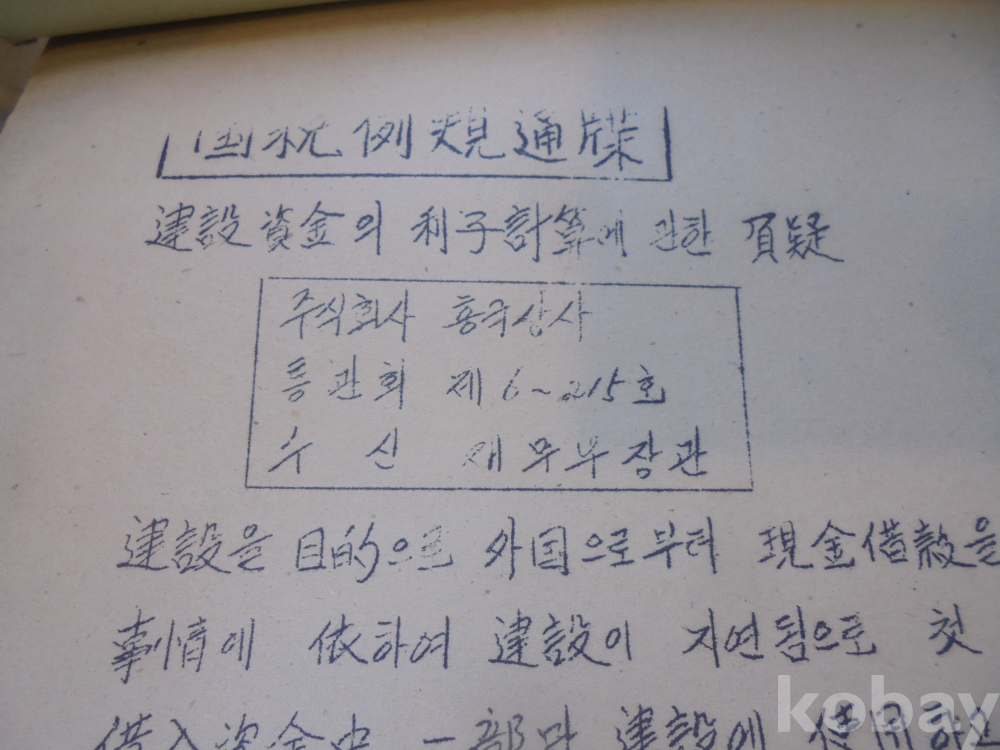 国税例規通牒
建設資金의 利子計算에 관한 質疑
주식회사 흥국상사
흥관회 제6~215호
수신 재무부장관
建設을 目的으로 外国으로부터 現金借款을
事情에 依하여 建設이 지연됨으로 첫
借入資金中 一部만 建設에 使用하고
kobay